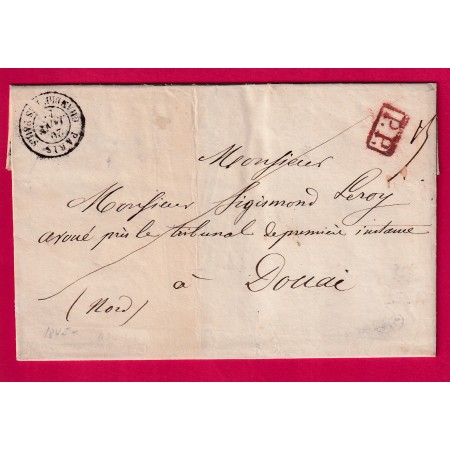 PARIS
P.P.
Monsieur
Monsieur Sigismond Leroy
avoué près le tribunal de première instance
à Douai
(Nord)